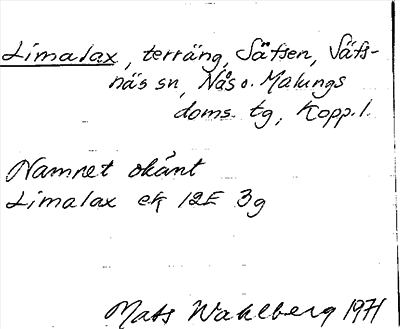 Limalax, terräng, Säfsen, Säfs-
näs sn, Nås o. Malungs
doms. tg, Kopp. l.
Namnet okänt
Limalax ek 12E 3g
Mats Wahlberg 1971